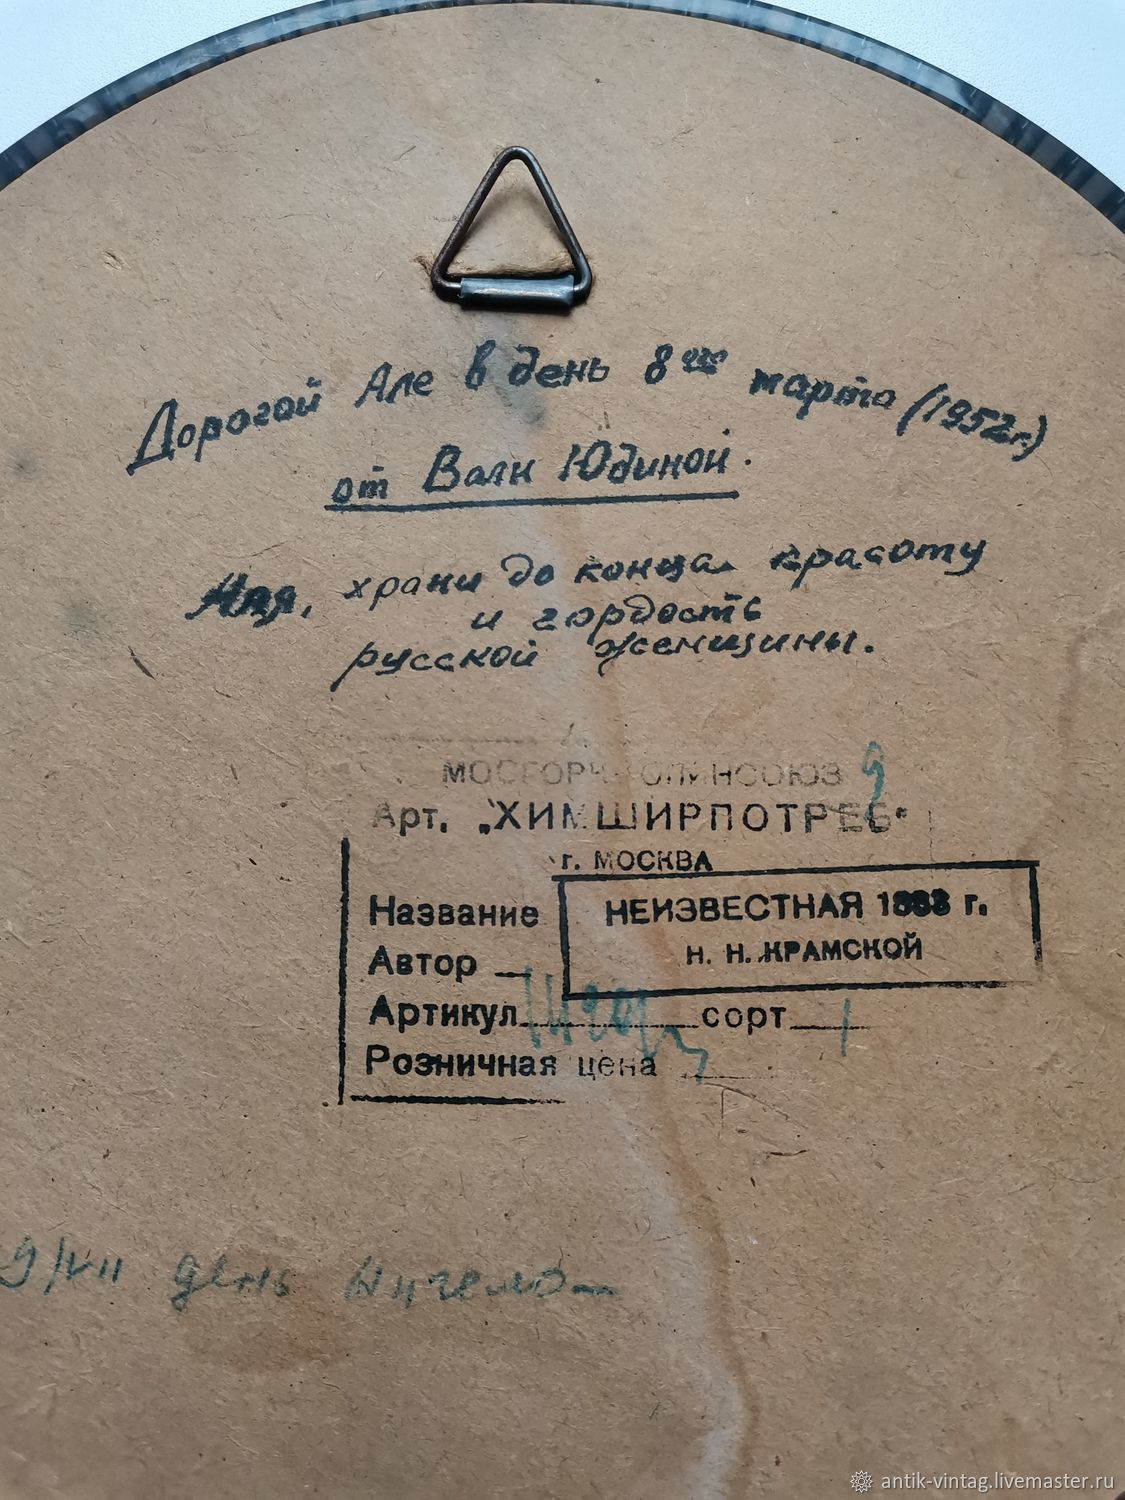 Дорогой Але в день 8го марта (1952г.)
от Вали Юдиной.
Аля, храни до конца красоту
и гордость
русской женщины.
Арт. „ХИМШИРПОТРЕБ"
г. МОСКВА
Название
НЕИЗВЕСТНАЯ 1883 г.
Автор
Н. Н. КРАМСКОЙ
Артикул сорт 1
Розничная цена
день
antik-vintag.livemaster.ru